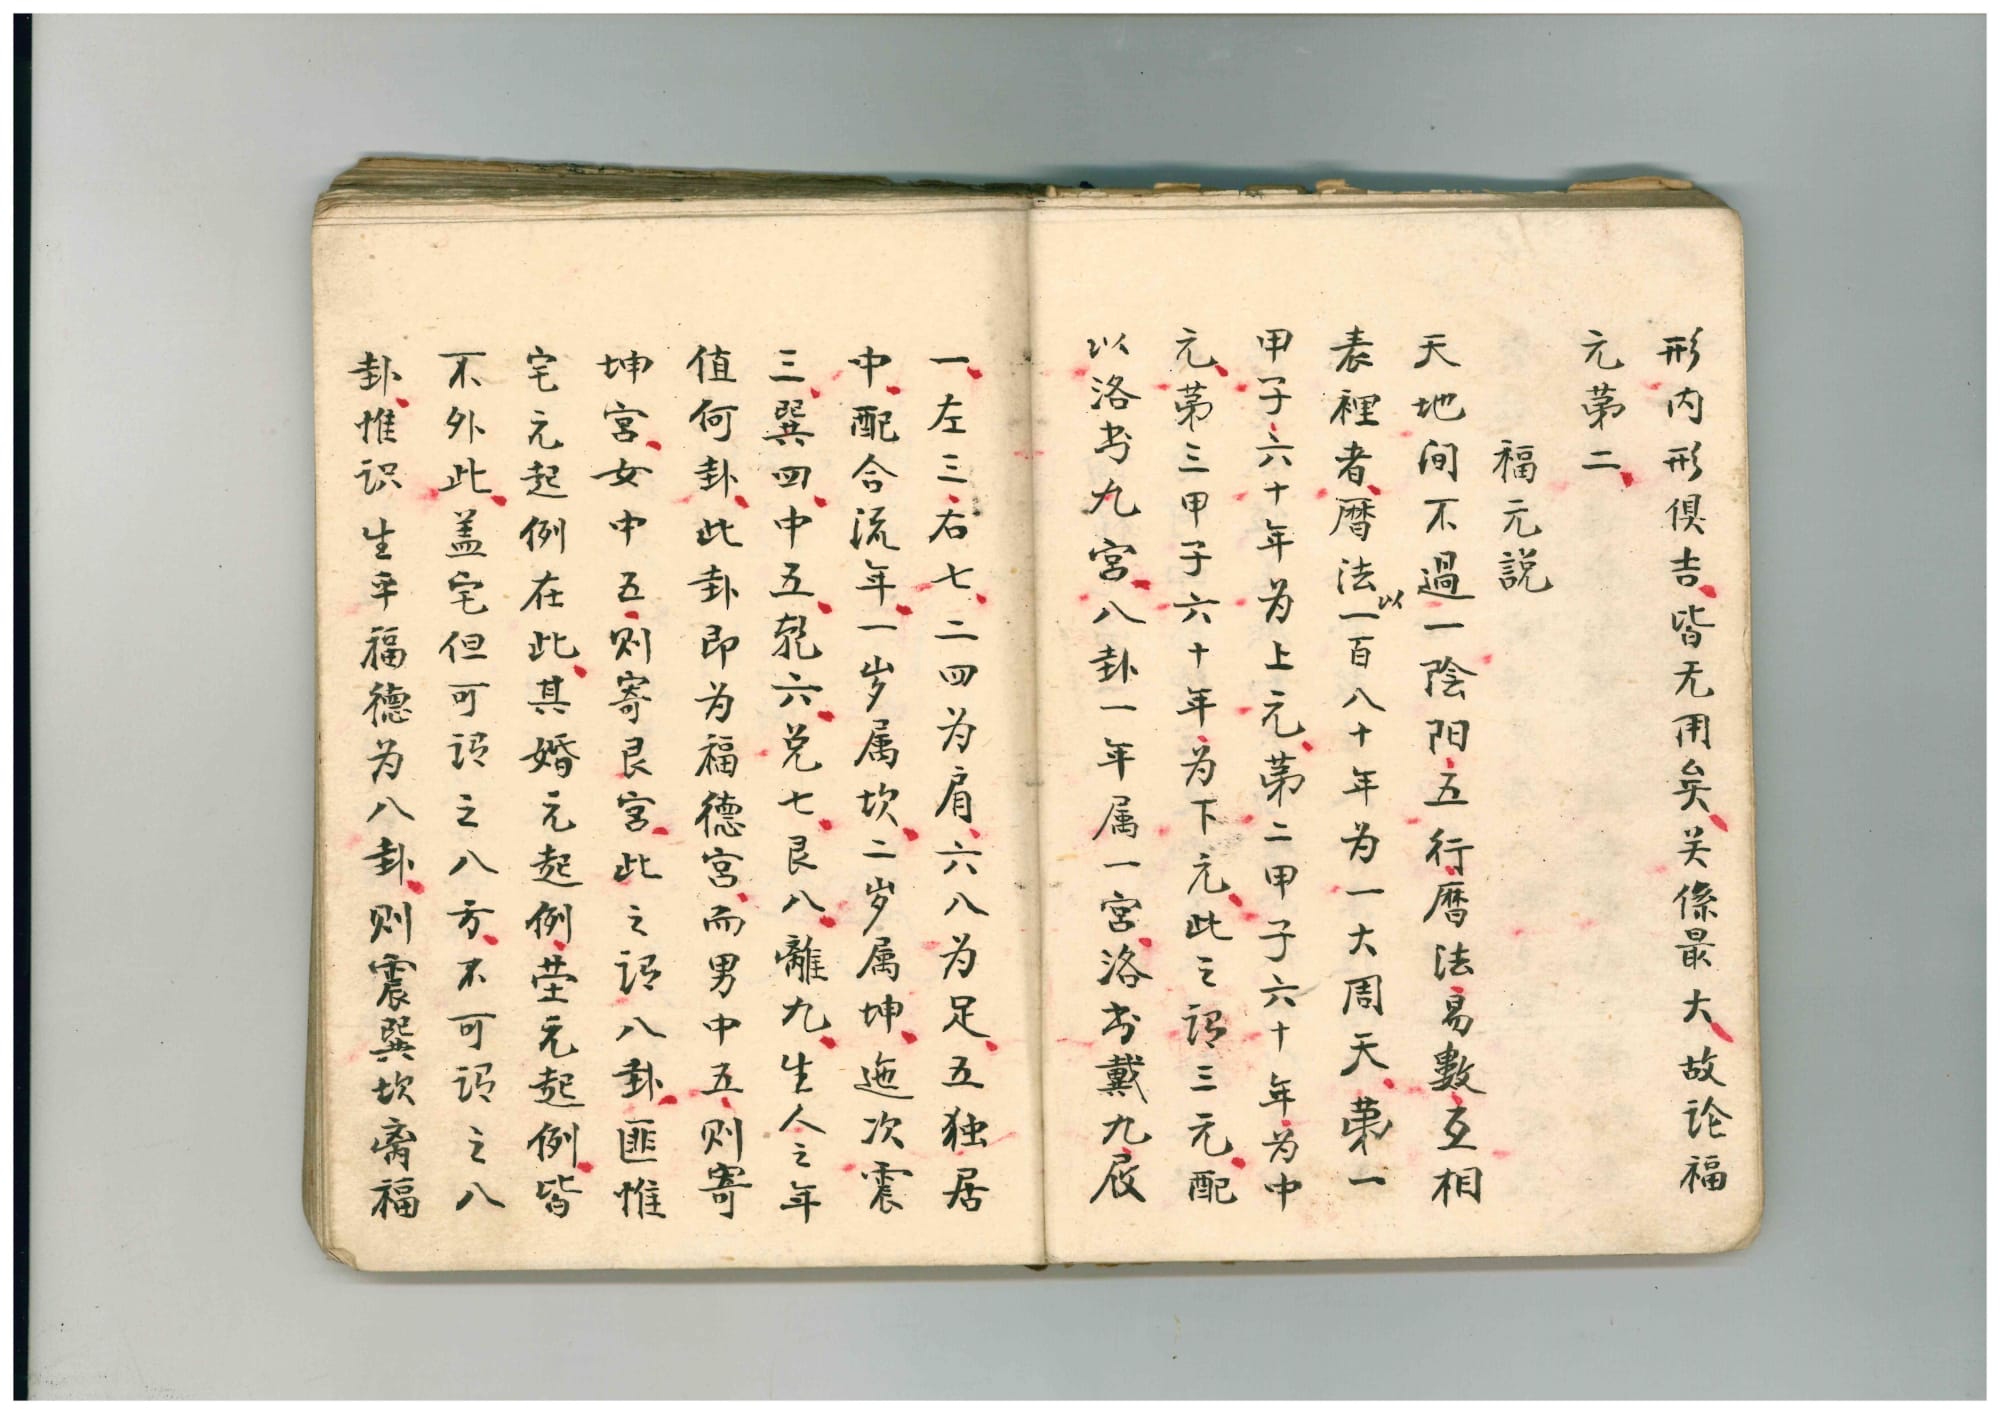 形内形俱吉、皆无用矣、关係最大、故论福
元苐二、
福元説
天地间不過一陰阳五行、暦法易數互相
表裡者、暦法以一百八十年为一大周天、苐一
甲子六十年为上元、苐二甲子六十年为中
元、苐三甲子六十年为下元、此之谓三元、配
以洛书九宮、八卦一年属一宮、洛书戴九履
一、左三右七、二四为肩、六八为足、五独居
中、配合流年、一岁属坎、二岁属坤、迤次震
三、巽四、中五、乾六、兑七、艮八、離九、生人之年
值何卦、此卦即为福德宮、而男中五、则寄
坤宮、女中五、则寄艮宮、此之谓八卦、匪惟
宅元起例在此、其婚元起例、茔元起例、皆
不外此、盖宅但可谓之八方、不可谓之八
卦、惟识生平福德为八卦、则震巽坎离福